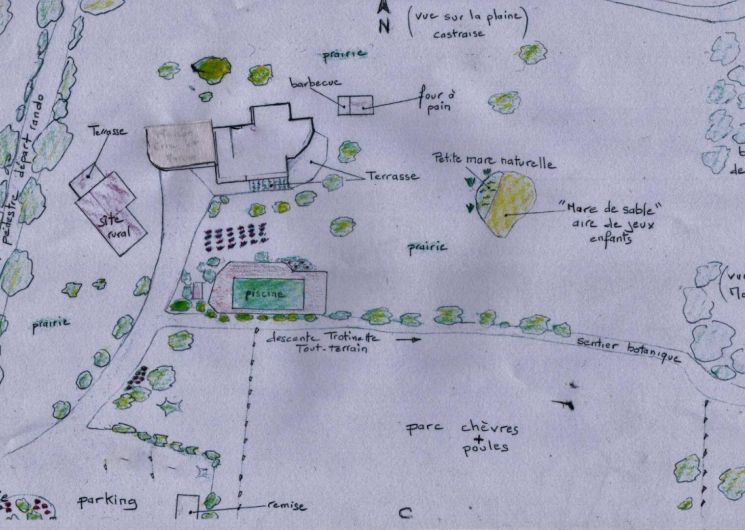 N
(vue sur la plaine
castraise)
prairie
barbecue
four à
pain
Terrasse
pédestre départ rando
Maison
Terrasse
Petite mare naturelle
"Mare de sable"
aire de jeux
enfants
Gîte
rural
prairie
piscine
prairie
(vue
descente Trotinette
Tout-terrain
sentier botanique
parc chèvres
+
poules
parking
remise
C